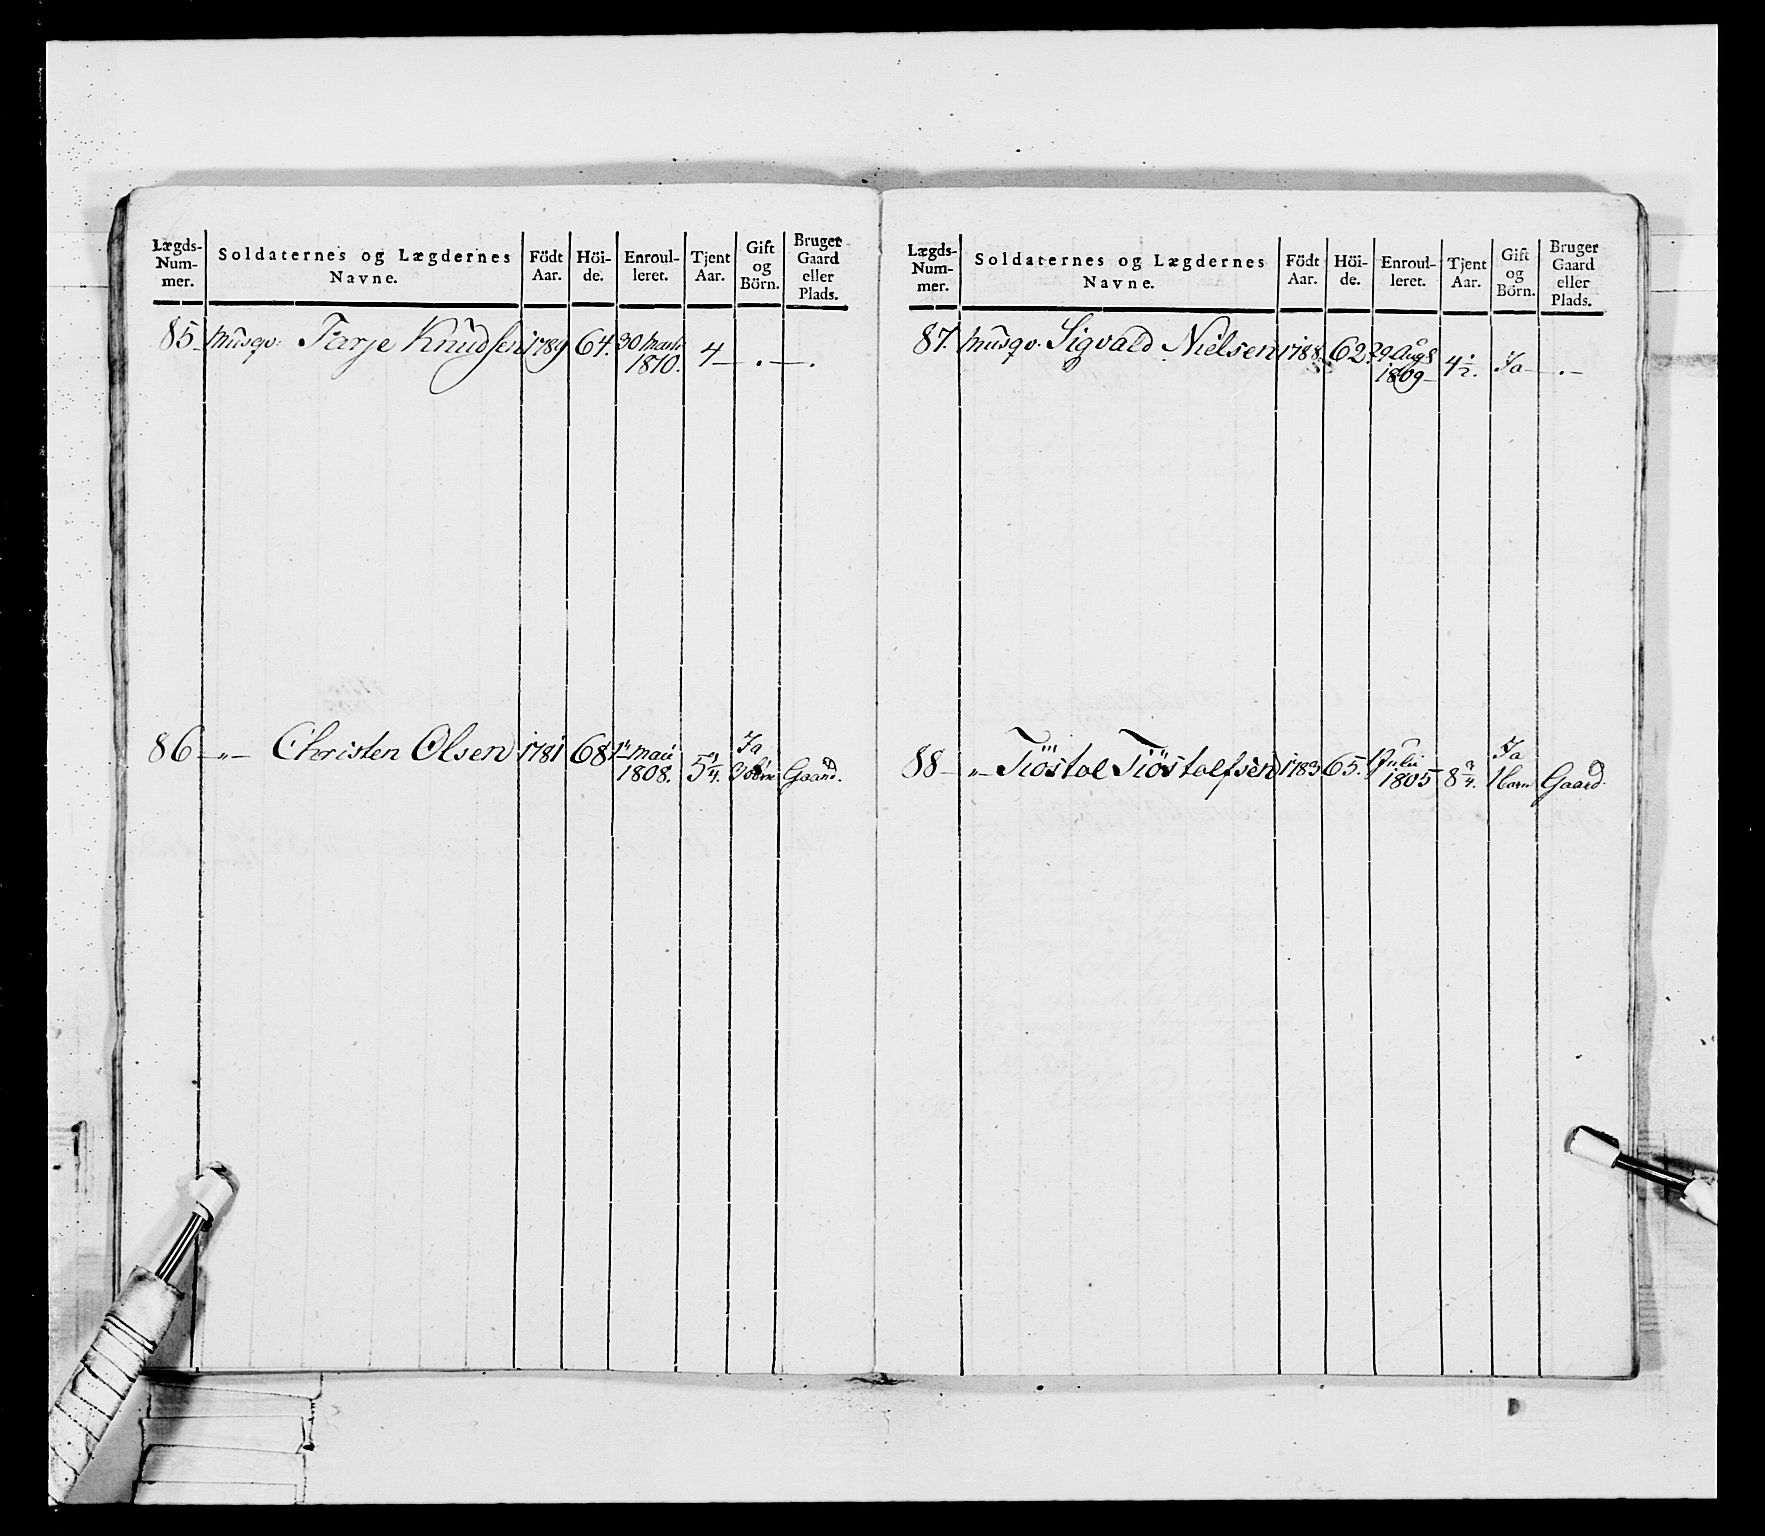 Lægds-Num-mer. Soldaternes og Lægdernes Navne. Födt Aar. Höi-de. Enroul-leret. Tjent Aar. Gift og Börn. Bruger Gaard eller Plads.
85 Musqv: Tarje Knudsen 1789 64. 30 Marti 1810. 4 — . — .
86 — „ — Christen Olsen 1781 68 1 Maii 1808. 5 3/4. Ja Gaard.
Lægds-Num-mer. Soldaternes og Lægdernes Navne. Födt Aar. Höi-de. Enroul-leret. Tjent Aar. Gift og Börn. Bruger Gaard eller Plads.
87. Musqv. Sigvald Nielsen 1788 62. 29 Aug 1809 4 1/2. Ja — . —
88 — „ — Tiöstol Tiöstolfsen 1783 65. Julii 1805 8 3/4. Ja 1 barn Gaard.